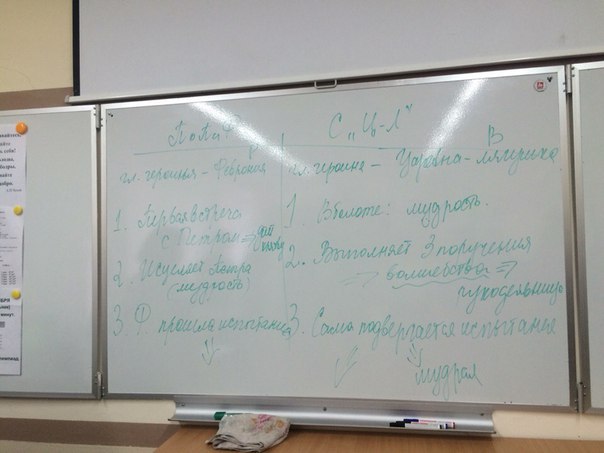 ПоПиФ
С "Ц-Л"
В
гл. героинья - Феврония
гл. героиня - Царовна-лягушка
1. Первая встреча
с Петром =>
1. В болоте: мудрость.
2. Исцеляет Петра
(мудрость)
2. Выполняет 3 поручения
=> волшебство =>
рукодельница
3. Ф прошла испытания
3. Сама подвергается испытания
мудрая